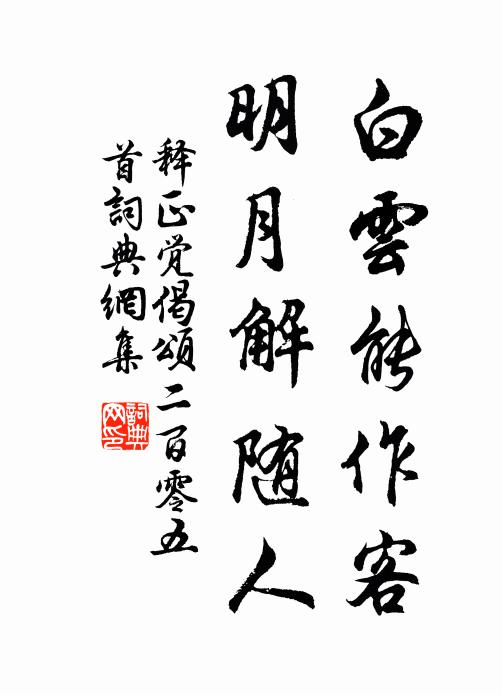 白雲能作客
明月解随人
释正觉偈頌二百零五
首詞典網集
詞典
网印